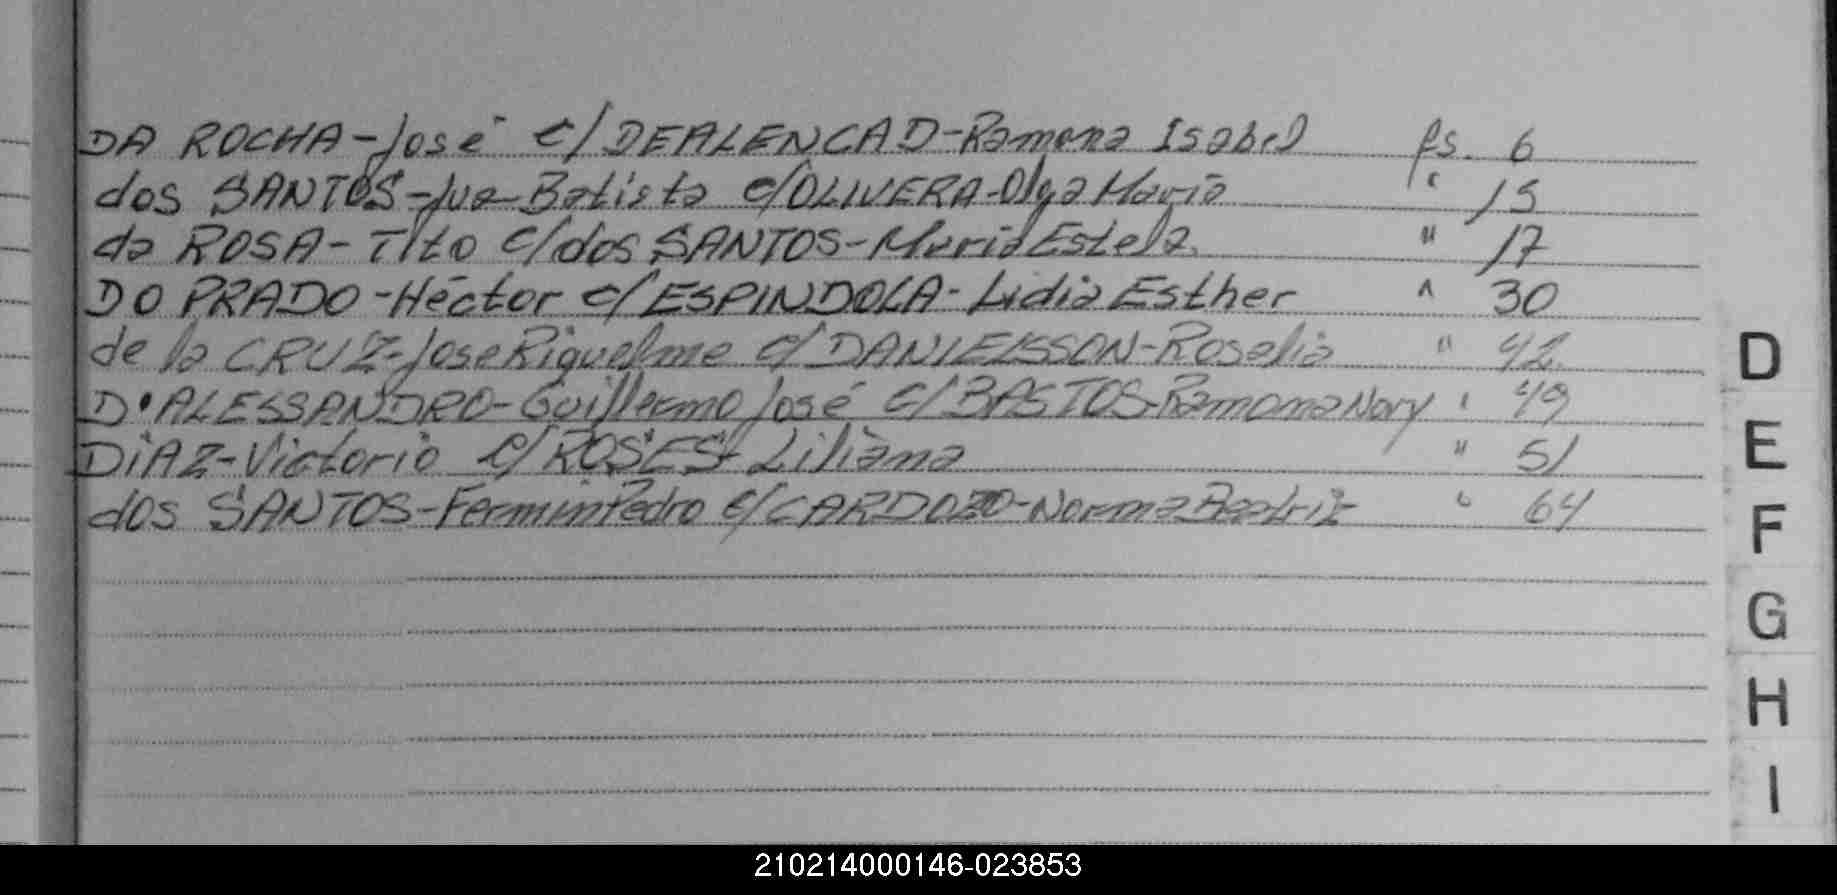 DA ROCHA-José c/DEALENCAD-Ramona Isabel fs. 6
dos SANTOS-Jua-Batista c/OLIVERA-Olga Maria " 15
da ROSA-Tito c/dos SANTOS-Maria Estela " 17
DO PRADO-Héctor c/ESPINDOLA-Lidia Esther " 30
de la CRUZ-Jose Riquelme c/DANIELSSON-Roselia " 42
D'ALESSANDRO-Guillermo José c/BASTOS-Ramona Nory " 49
DiAZ-Victorio c/ROSES-Liliana " 51
dos SANTOS-Fermin Pedro c/CARDOZO-Norma Beatriz " 64
D
E
F
G
H
I
210214000146-023853